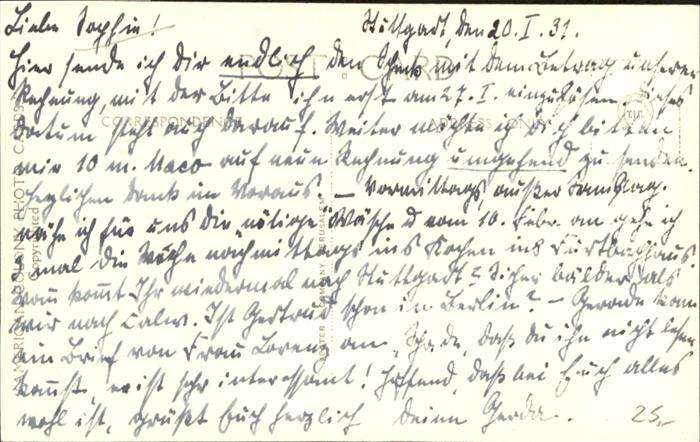 Liebe Sophie! Stuttgart, den 20. I. 31.
Hier sende ich Dir endlich den Scheck mit dem Betrag unserer
Rechnung, mit der Bitte ihn erst am 27. I. einzulösen. Dieses
Datum steht auch darauf. Weiter möchte ich Dich bitten
mir 10 m. Maco auf neue Rechnung umgehend zu senden.
Herzlichen Dank im Voraus. – Vormittags außer Samstag
nähe ich für uns die nötige Wäsche u vom 10. Febr. an gehe ich
mal die Woche nachmittags ins Kochen ins Furtbachhaus
wann kommt Ihr wiedermal nach Stuttgart? Sicher bälder als
wir nach Calw. Ist Gertrud schon in Berlin? – Gerade kam
ein Brief von Frau Lorenz an. Schade, daß Du ihn nicht lesen
kannst, er ist sehr interessant! Hoffend, daß bei Euch alles
wohl ist, grüßt Euch herzlich Deine Gerda.
25,-
POST CARD
CORRESPONDENCE
ADDRESS ONLY